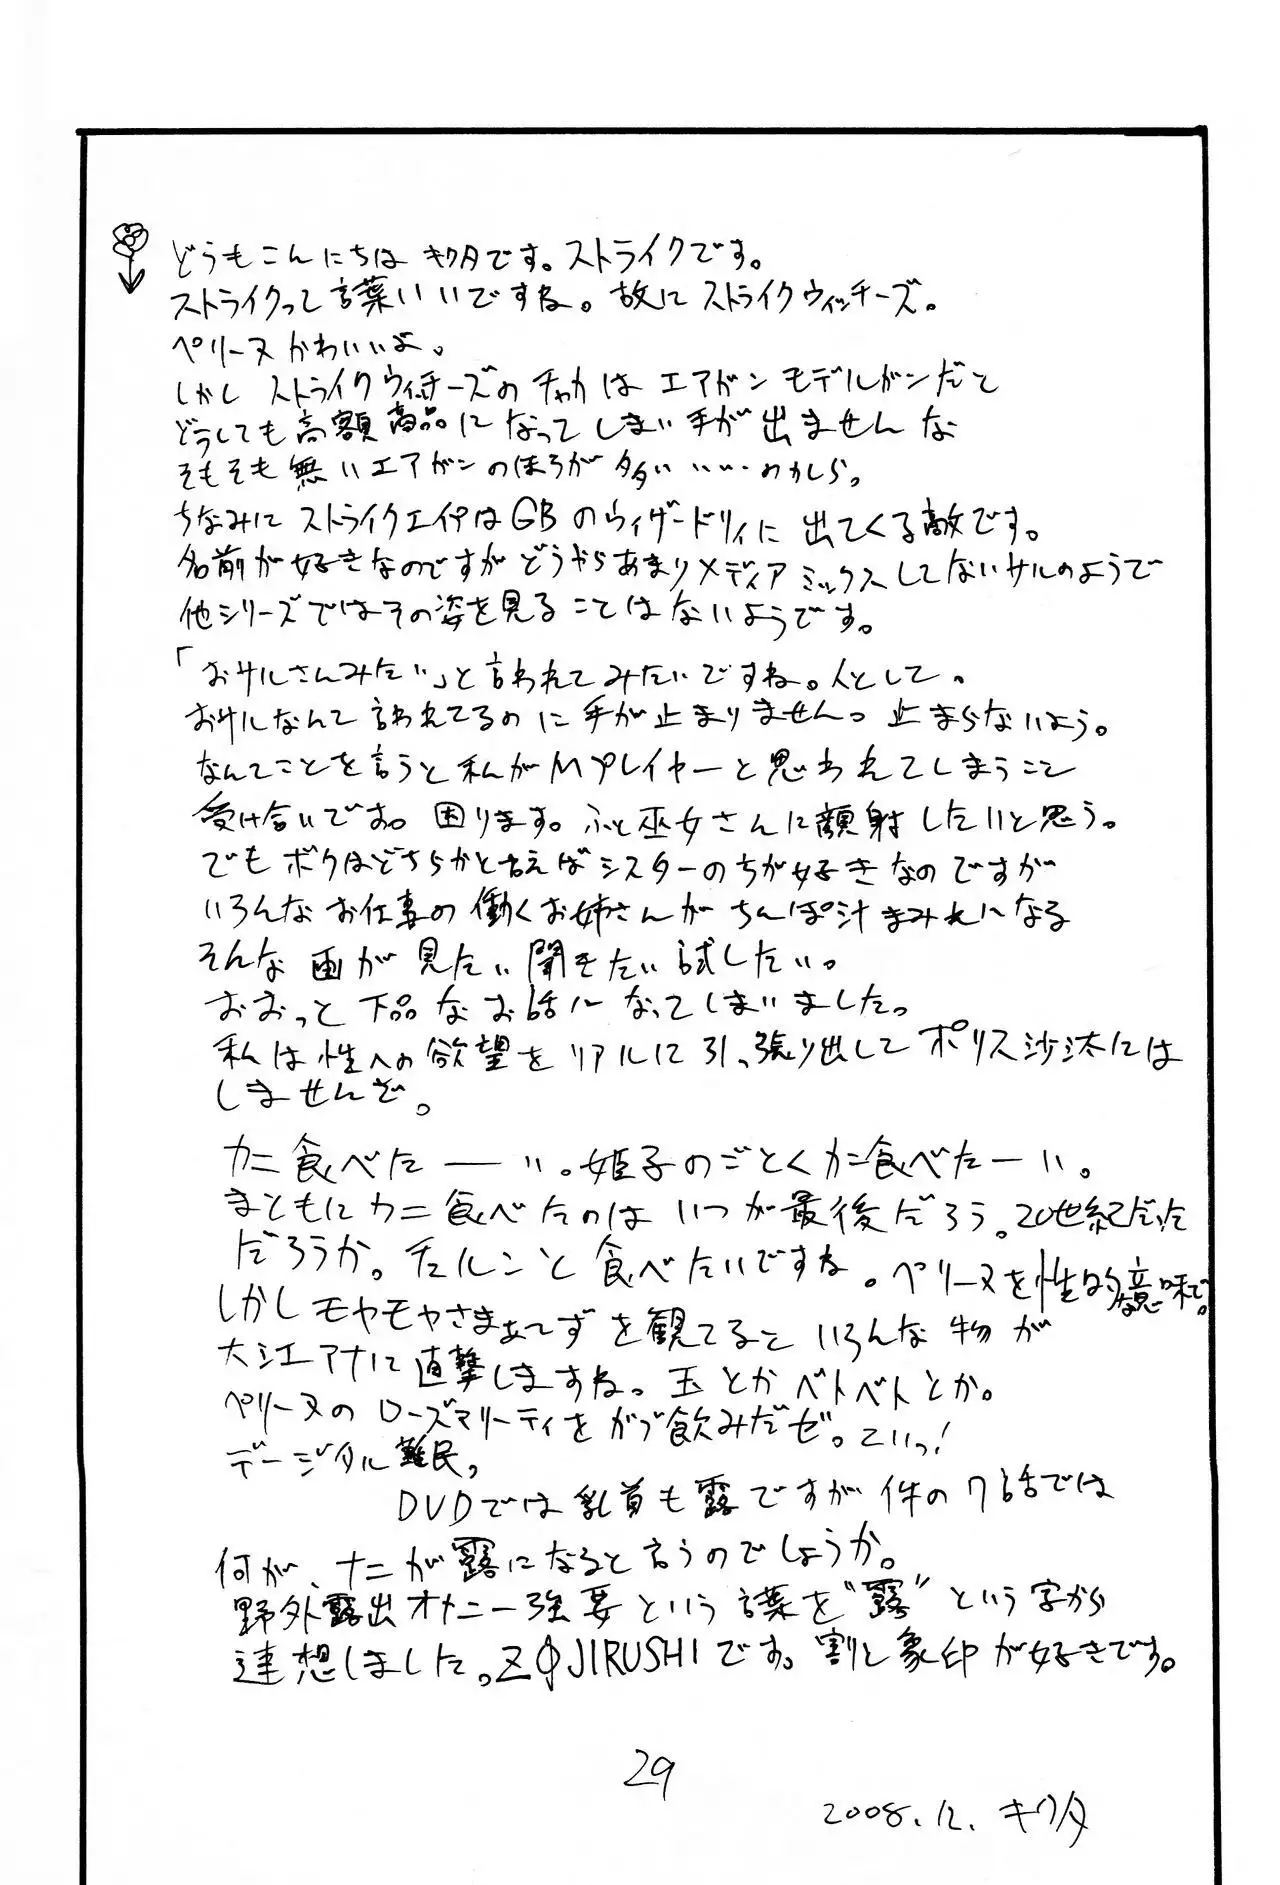 どうもこんにちは キクタです。ストライクです。
ストライクって言葉いいですね。故にストライクウィッチーズ。
ペリーヌかわいいよ。
しかしストライクウィッチーズのチャカはエアガンモデルガンだと
どうしても高額商品になってしまい手が出ませんな
そもそも無いエアガンのほうが多い……かしら。
ちなみにストライクエイプはGBのウィザードリィに出てくる敵です。
名前が好きなのですがどうやらあまりメディアミックスしてないサルのようで
他シリーズではその姿を見ることはないようです。
「おサルさんみたい」と言われてみたいですね。人として。
おサルなんて言われてるのに手が止まりません。止まらないよう。
なんてことを言うと私がMプレイヤーと思われてしまうこと
受け合いです。困ります。ふと巫女さんに顔射したいと思う。
でもボクはどちらかと言えばシスターのちが好きなのですが
いろんなお仕事の働くお姉さんがちんぽ汁まみれになる
そんな画が見たい聞きたい試したい。
おおっと下品なお話になってしまいました。
私は性への欲望をリアルに引っ張り出してポリス沙汰には
しませんぞ。
カニ食べたーい。姫子のごとくカニ食べたーい。
まともにカニ食べたのはいつが最後だろう。20世紀だった
だろうか。チェルシーと食べたいですね。ペリーヌを性的な意味で。
しかしモヤモヤさまぁ～ずを観てるといろんな物が
大江アナに直撃しますね。玉とかベトベトとか。
ペリーヌのローズマリーティをがぶ飲みだぜ。こいっ!
デージタル難民。
DVDでは乳首も露ですが件の7話では
何が、ナニが露になると言うのでしょうか。
野外露出オナニー強要という言葉を"露"という字から
連想しました。ZOJIRUSHIです。割と象印が好きです。
29
2008.12. キクタ